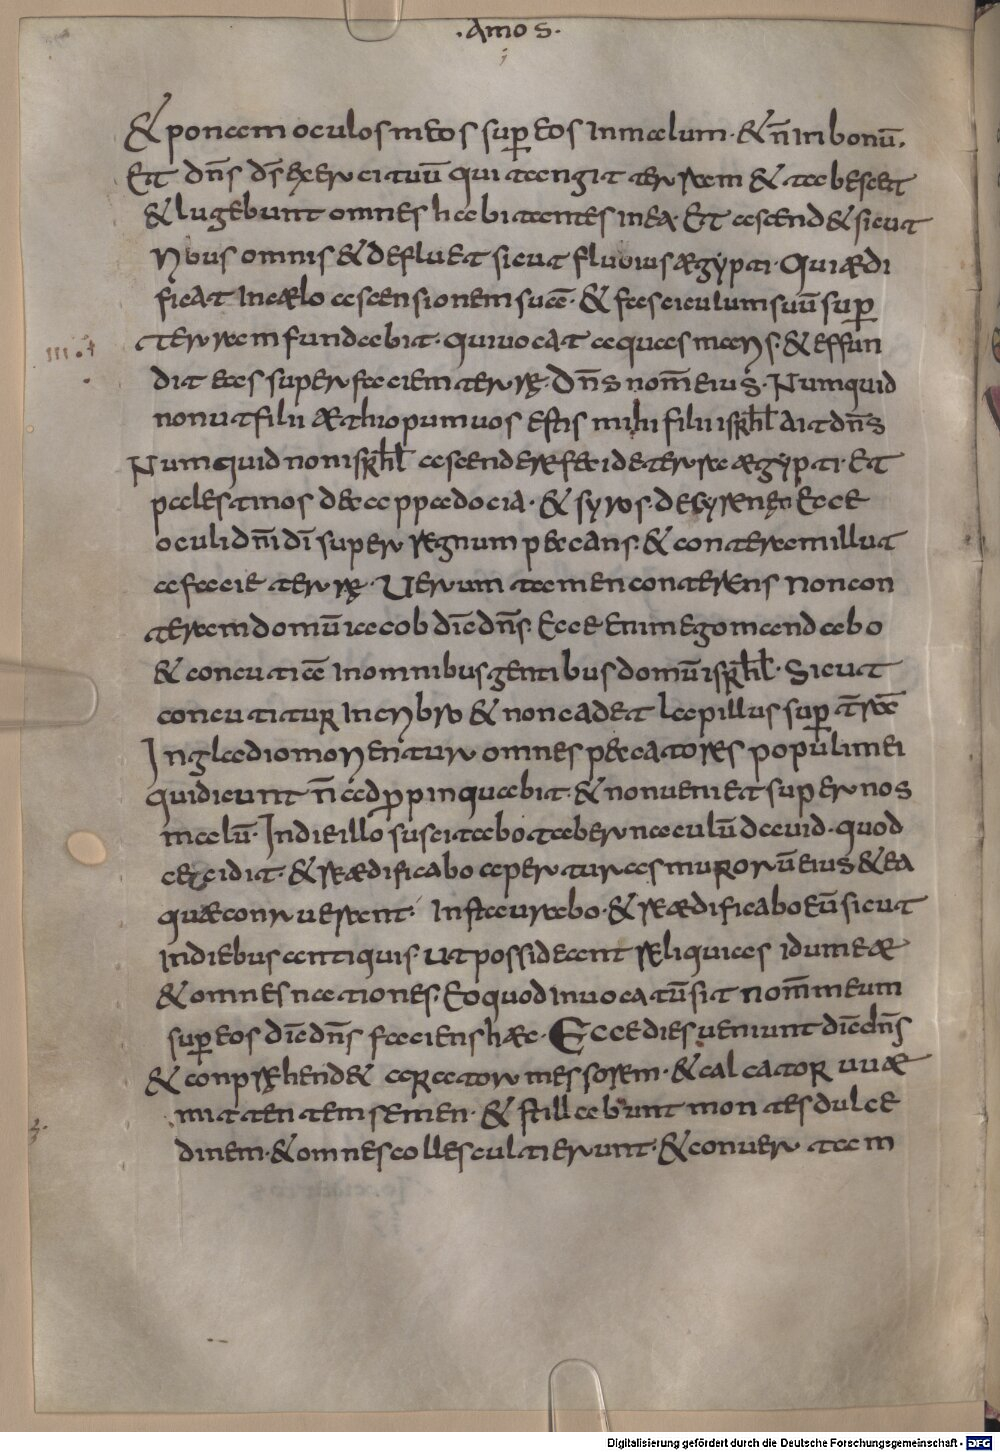 .Amos.
& ponam oculos meos sup̲ eos in malum· & n̄ in bonū,
Et dn̄s ds̄ exercituū qui tangit terram & tabescet
& lugebunt omnes habitantes in ea· Et ascend& sicut
rivus omnis & defluet sicut fluvius ægypti· Qui ædi
ficat in cælo ascensionem suā· & fasciculum suū sup̲
terram fundabit· qui vocat aquas maris· & effun
dit eas super faciem terrę· Dn̄s nom̄ eius· Numquid
non ut filii æthiopum vos estis mihi filii isrl̄ Ait dn̄s
Numquid non isrl̄ ascendere feci de terra ægypti· Et
palestinos de cappadocia· & syros de cyrene Ecce
oculi dn̄i dī super regnum peccans· & conteram illut
a facie terrę· Verum tamen conterens non con
teram domū iacob diē dn̄s· Ecce enim ego mandabo
& concutiā in omnibus gentibus domū isrl̄· Sicut
concutitur in cribro & non cadet lapillus sup̲ t̄rā
In gladio morientur omnes peccatores populi mei
qui dicunt n̄ adp̲pinquabit· & non veniet super nos
malū· In die illo suscitabo tabernaculū david· quod
cecidit· & reædificabo aperturas murorū eius & ea
quæ conruerant· Instaurabo· & reædificabo eū sicut
in diebus antiquis· ut possideant reliquias idumeæ
& omnes nationes· Eo quod invocatū sit nom̄ meum
sup̲ eos diē dn̄s faciens hæc· Ecce dies veniunt diē dn̄s
& conprehend& arator messorem· & calcator uvæ
mittentem semen· & stillabunt montes dulce
dinem· & omnes colles culti erunt· & convertam
Digitalisierung gefördert durch die Deutsche Forschungsgemeinschaft - DFG